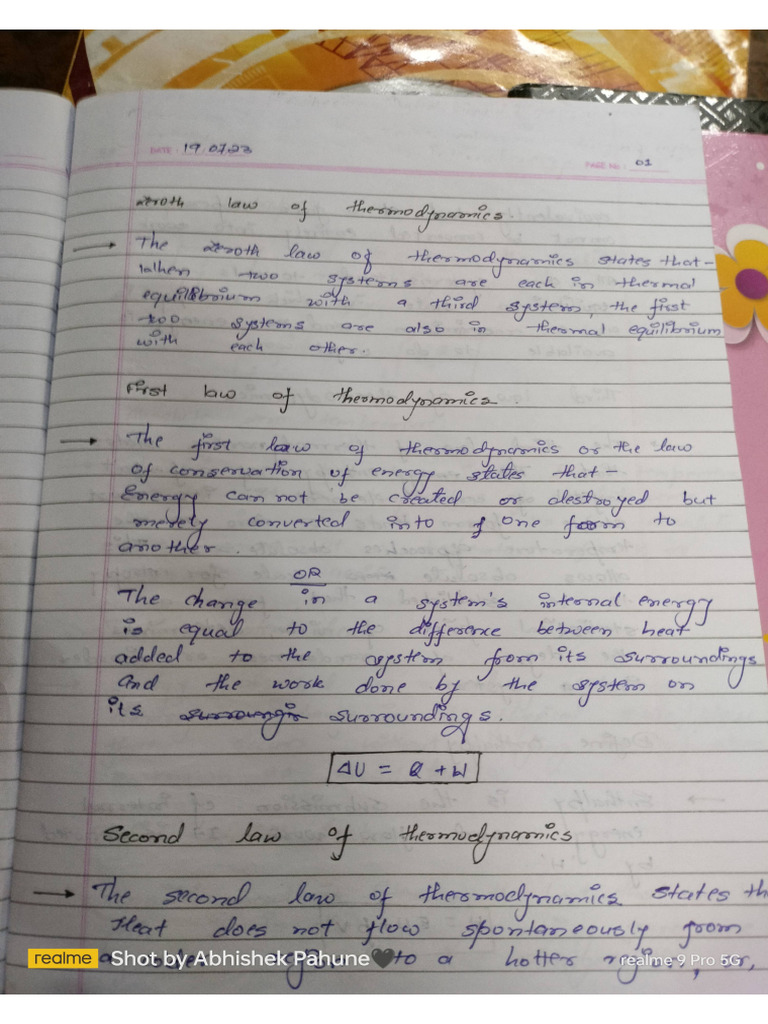 DATE: 19.07.23
PAGE No.: 01
zeroth law of thermodynamics.
→ The zeroth law of thermodynamics states that-
When two systems are each in thermal
equilibrium with a third system, the first
two systems are also in thermal equilibrium
with each other.
First law of thermodynamics.
→ The first law of thermodynamics or the law
of conservation of energy states that-
Energy can not be created or destroyed but
merely converted into one form to
another.
OR
The change in a system's internal energy
is equal to the difference between heat
added to the system from its surroundings
and the work done by the system on
its surroundings.
ΔU = Q + W
Second law of thermodynamics
→ The second law of thermodynamics states th
Heat does not flow spontaneously from
a to a hotter region, or,
realme Shot by Abhishek Pahune🖤
realme 9 Pro 5G